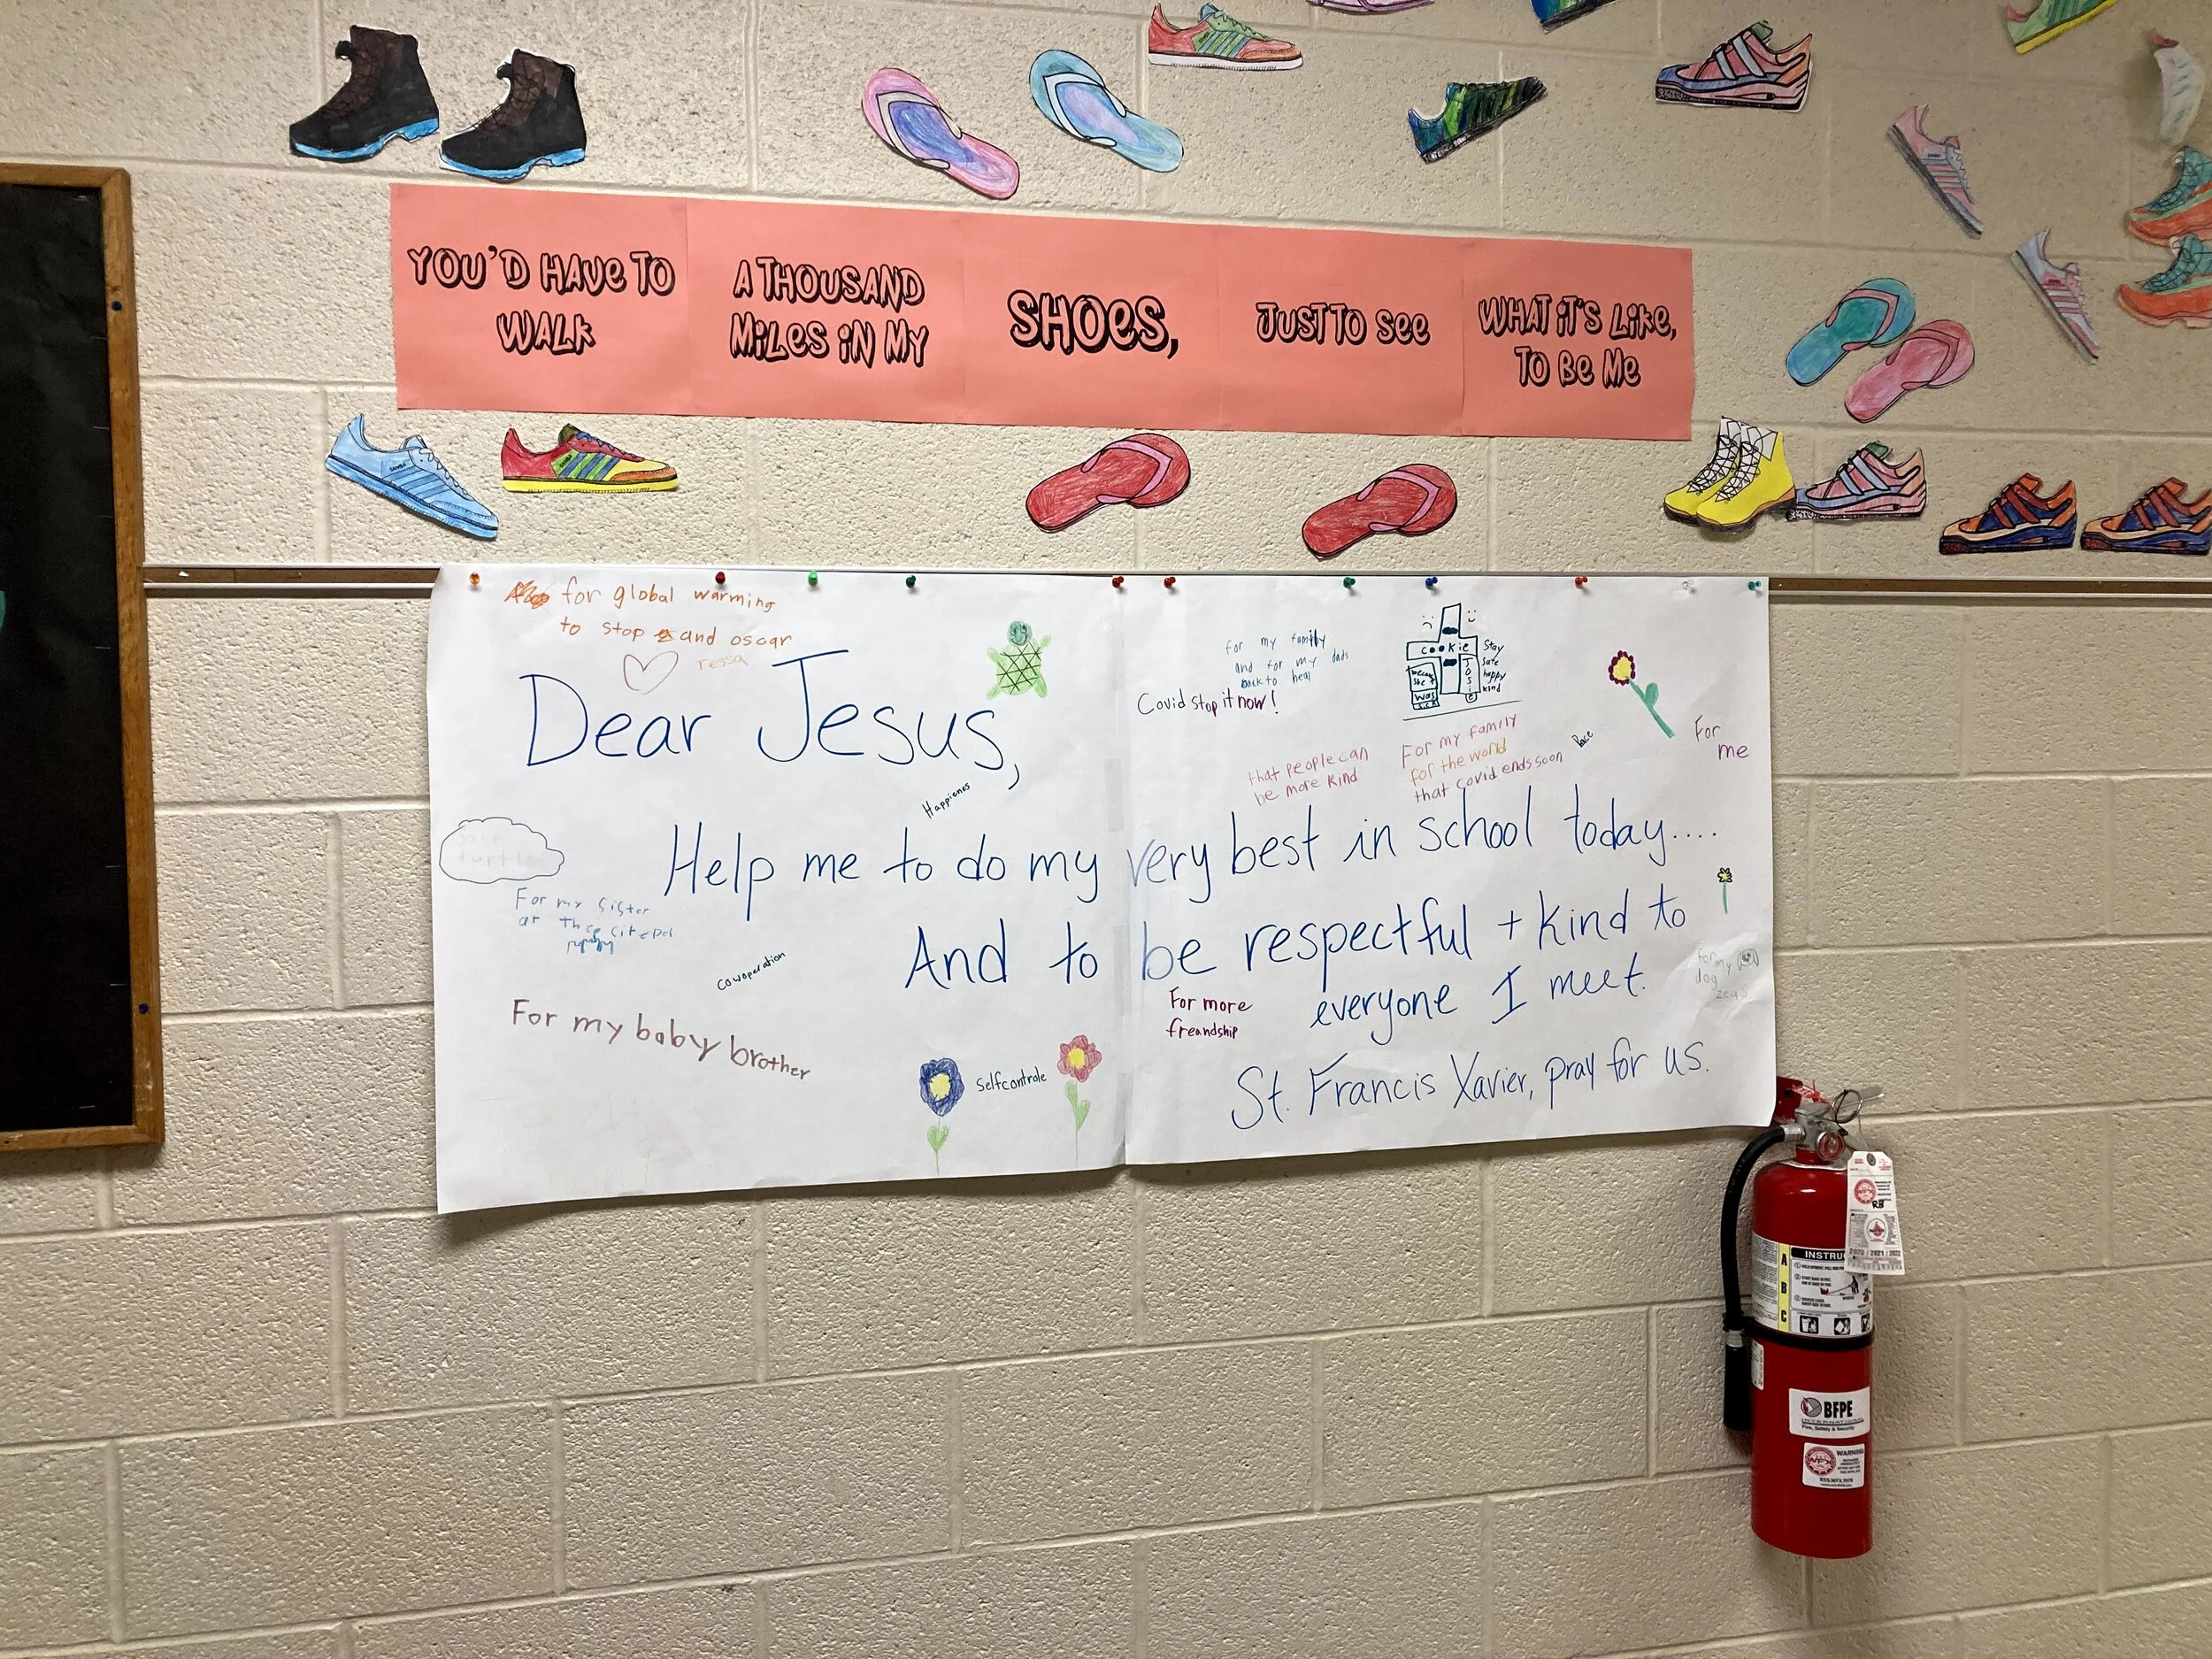 YOU'D HAVE TO
WALK
A THOUSAND
MILES IN MY
SHOES,
JUST TO SEE
WHAT IT'S LIKE,
TO BE ME
for global warming
to stop and oscar
Tessa
Dear Jesus,
Happienes
for my family
and for my dads
back to heal
Covid stop it now!
cookie
Josie
Stay
safe
happy
kind
that people can
be more kind
For my family
for the world
that covid ends soon
For
me
Help me to do my very best in school today....
And to be respectful + kind to
everyone I meet.
St. Francis Xavier, pray for us.
save
turtles
For my sister
at the
cowoperation
For my baby brother
selfcontrole
For more
freandship
for
my
dog
zeus
SAMBA
SAMBA
RB
2020 / 2021 / 2022
INSTRU
A
B
C
BFPE
INTERNATIONAL
Fire, Safety & Security
WARNING